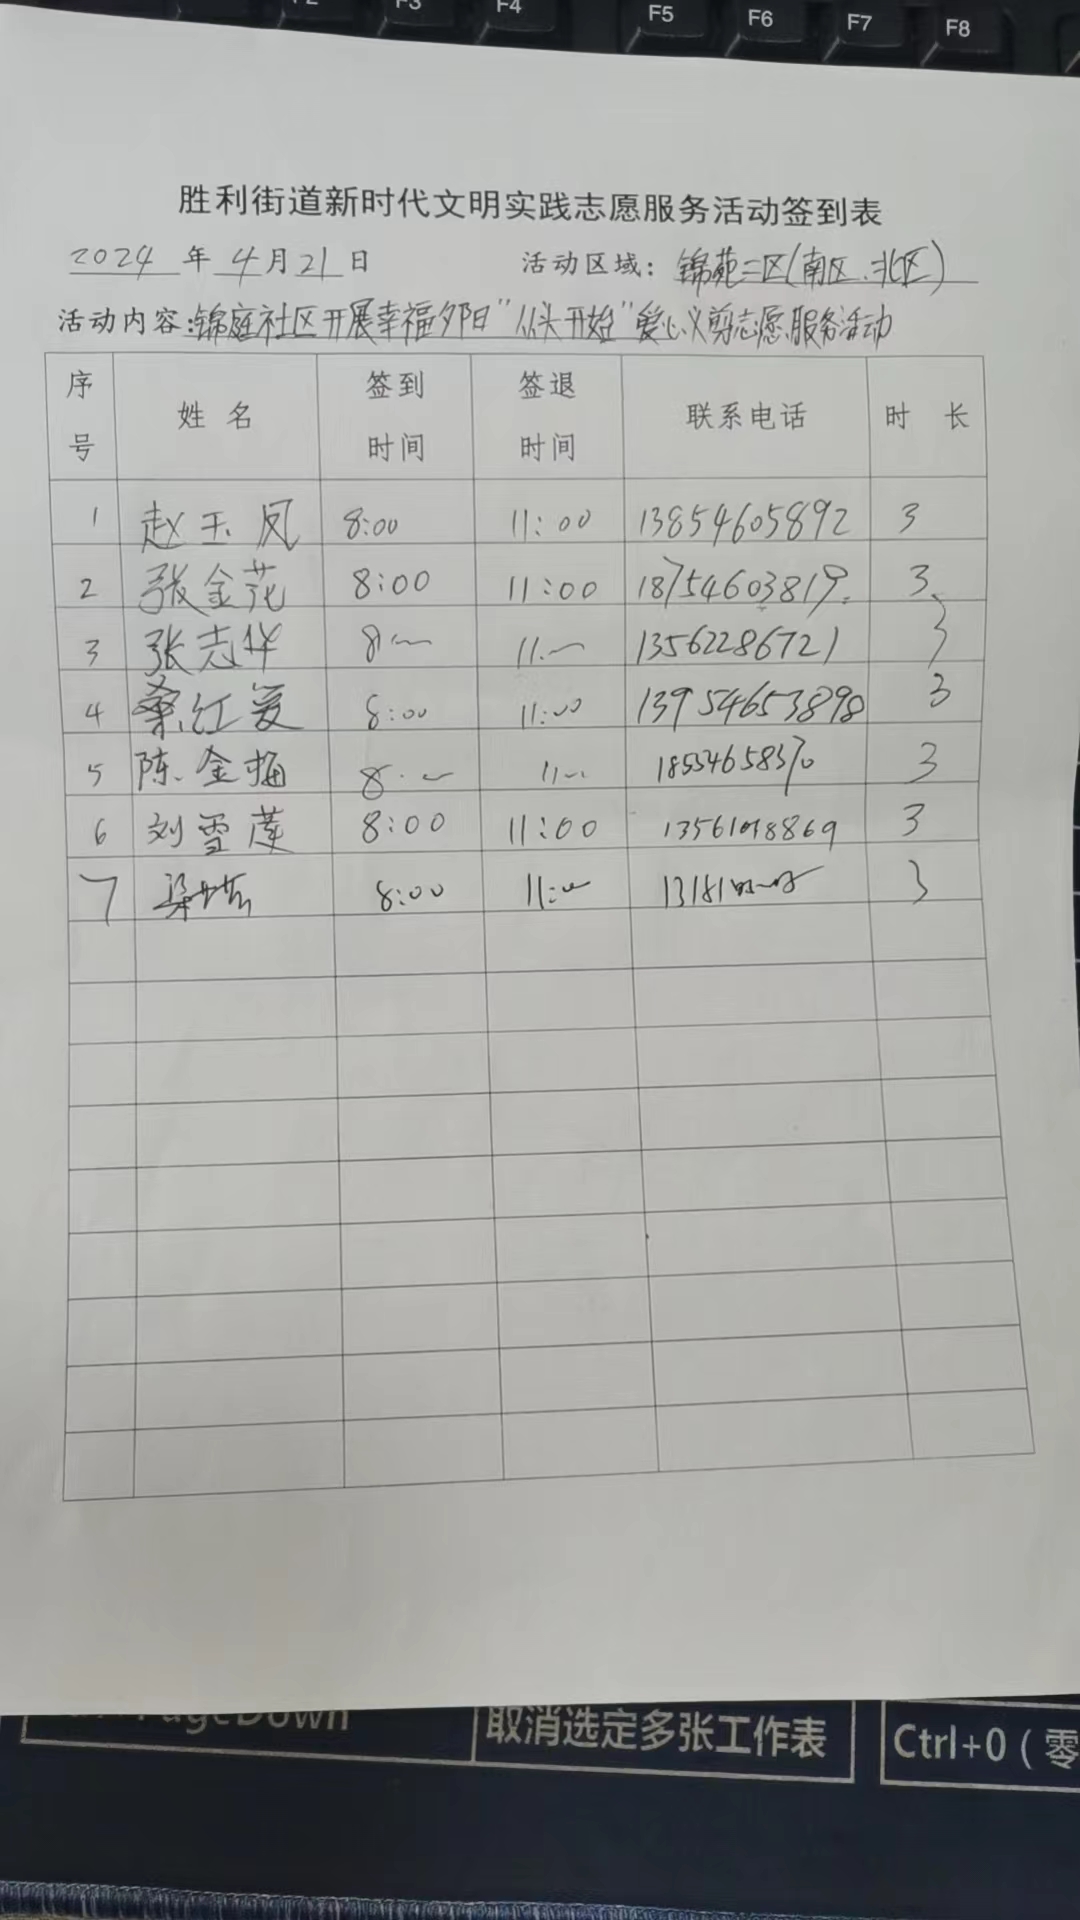 F3 F4 F5 F6 F7 F8
胜利街道新时代文明实践志愿服务活动签到表
2024 年 4月21日 活动区域：锦苑二区(南区、北区)
活动内容：锦庭社区开展幸福夕阳"从头开始"爱心义剪志愿服务活动
序号 姓名 签到时间 签退时间 联系电话 时长
1 赵玉凤 8:00 11:00 13854605892 3
2 张金花 8:00 11:00 18754603819 3
3 张志华 8 11 13562286721 3
4 桑红爱 8:00 11:00 13954653898 3
5 陈金梅 8 11 18554658370 3
6 刘雪莲 8:00 11:00 3
7 梁 8:00 11:00 3
PageDown 取消选定多张工作表 Ctrl+0（零